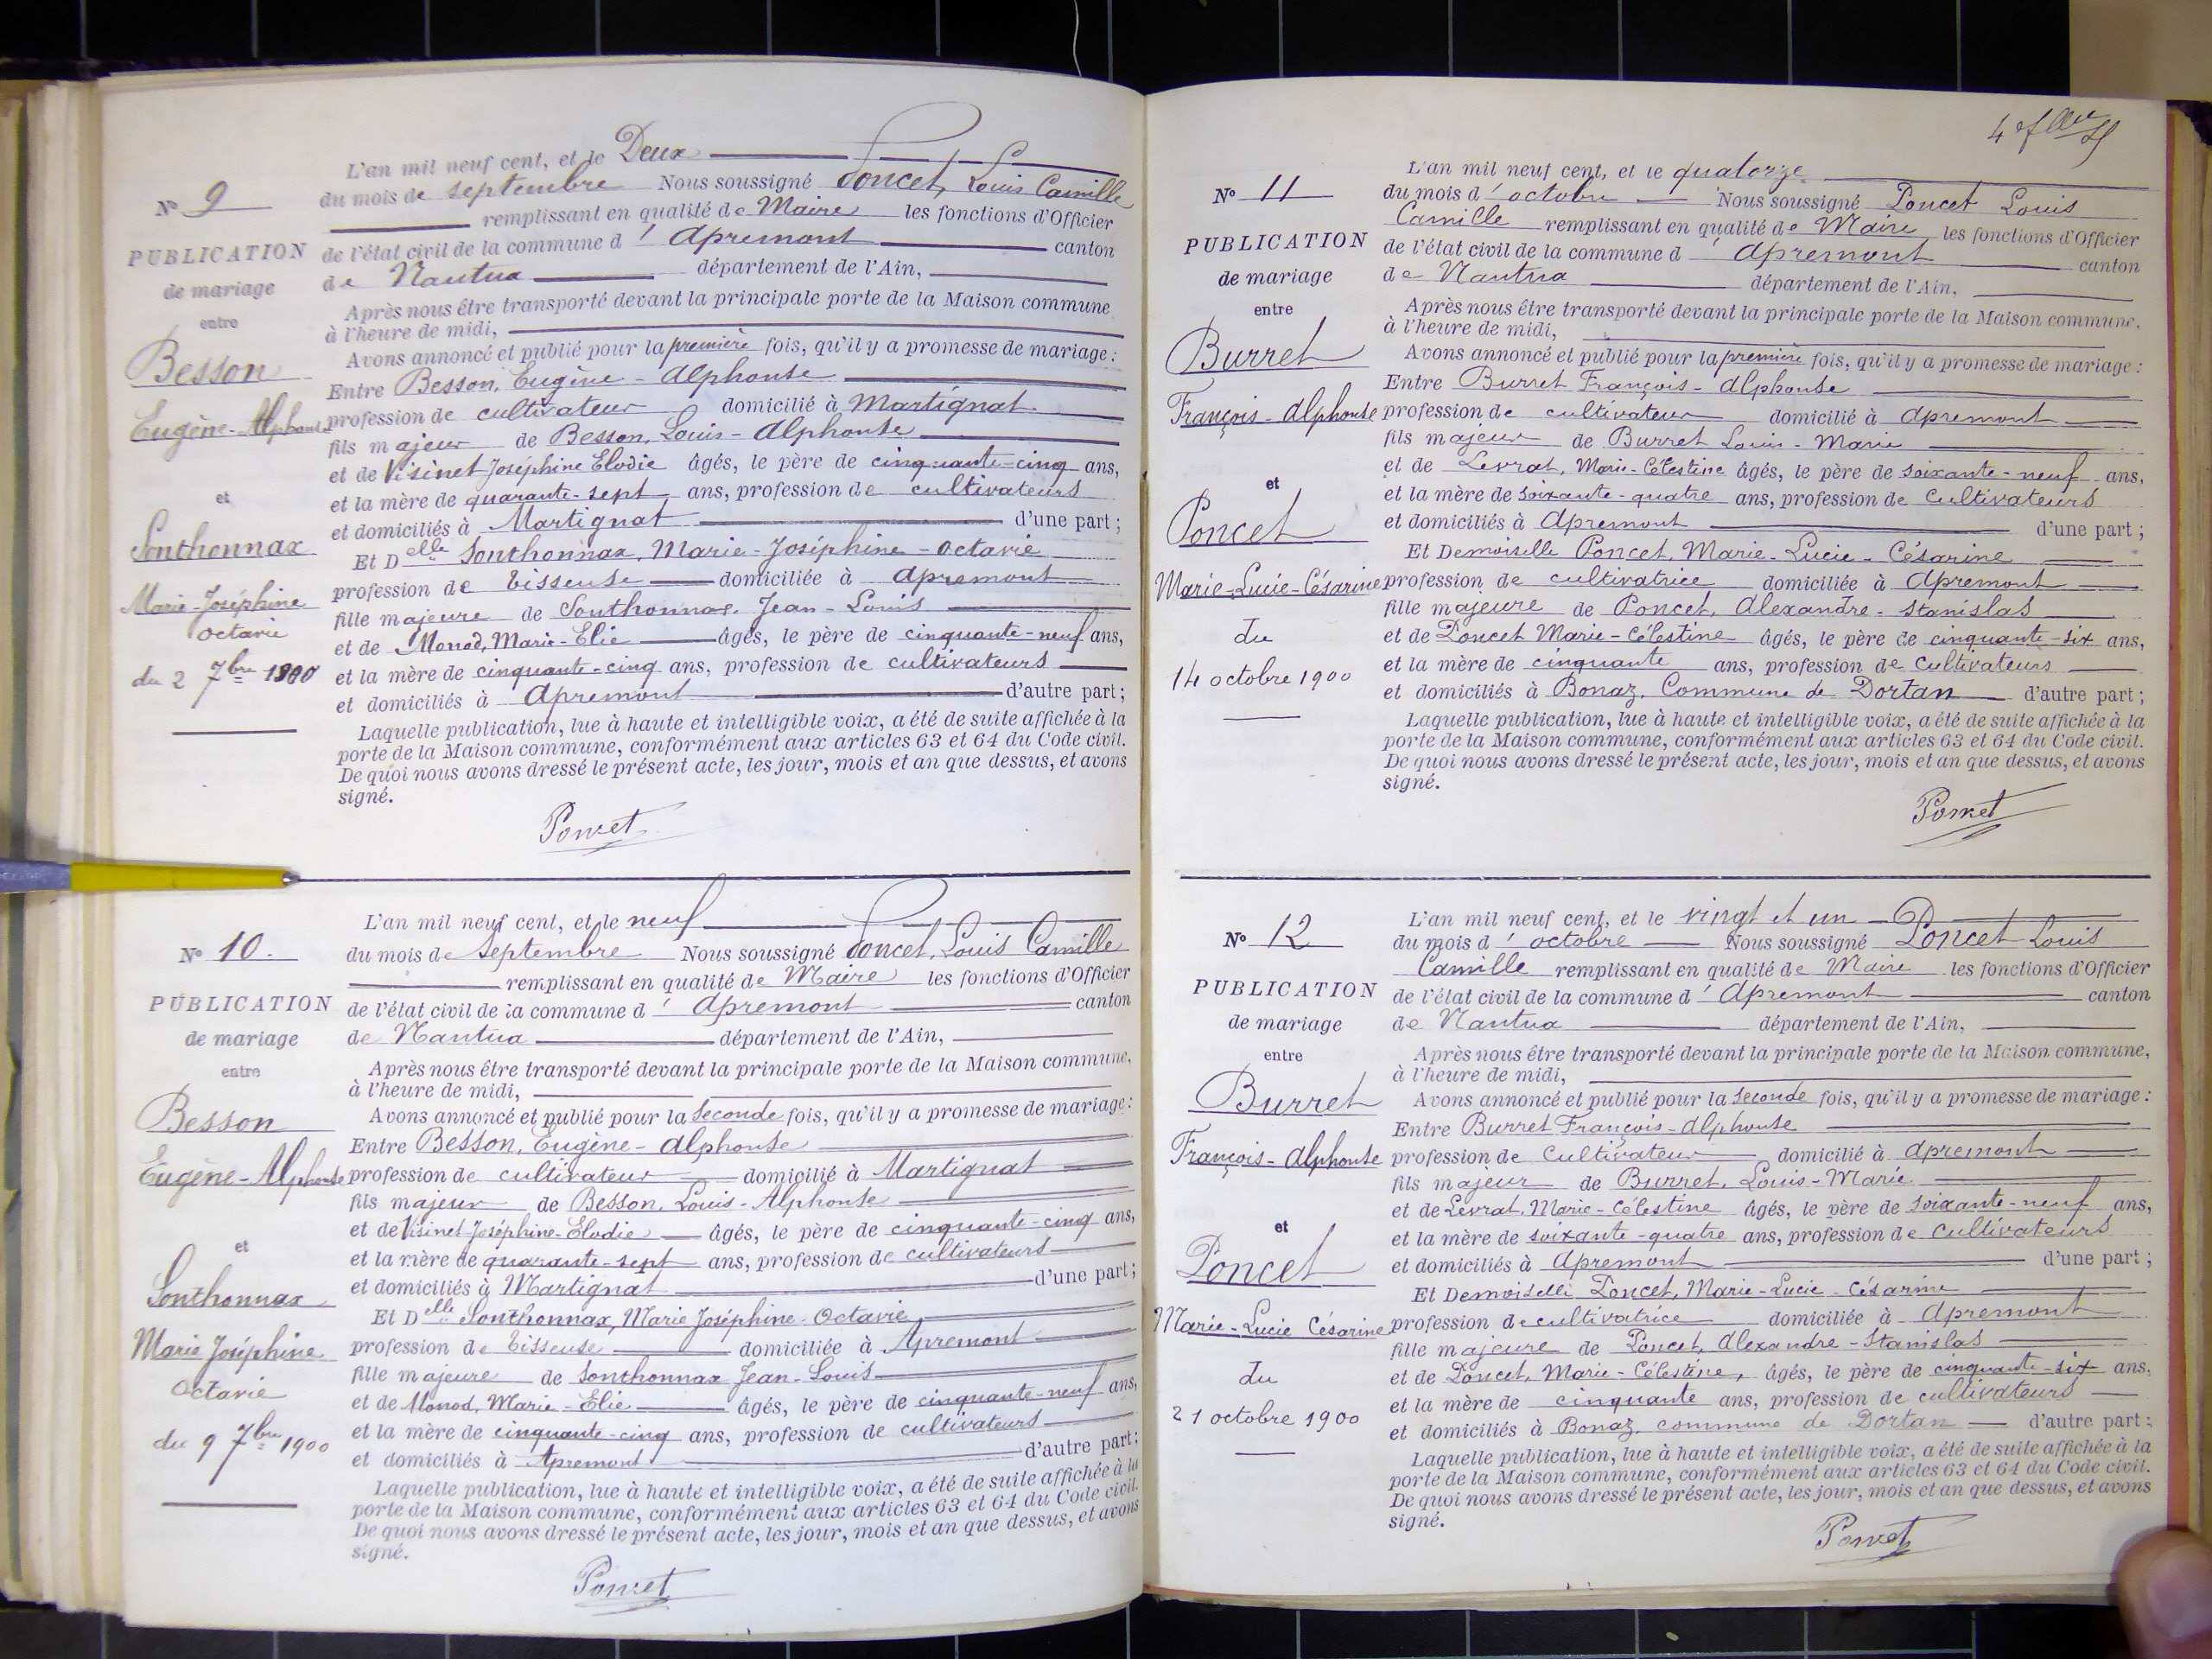 N° 9
PUBLICATION
de mariage
entre
Besson
Eugène-Alphonse
et
Sonthonnax
Marie-Joséphine
octavie
du 2 7bre 1900
L'an mil neuf cent, et le Deux
du mois de septembre Nous soussigné Poncet, Louis Camille
remplissant en qualité de Maire les fonctions d'Officier
de l'état civil de la commune d' Apremont canton
de Nantua département de l'Ain,
Après nous être transporté devant la principale porte de la Maison commune
à l'heure de midi,
Avons annoncé et publié pour la première fois, qu'il y a promesse de mariage:
Entre Besson, Eugène-Alphonse
profession de cultivateur domicilié à Martignat
fils majeur de Besson, Louis-Alphonse
et de Visinet Joséphine Elodie âgés, le père de cinquante-cinq ans,
et la mère de quarante-sept ans, profession de cultivateurs
et domiciliés à Martignat d'une part;
Et Delle Sonthonnax, Marie-Joséphine-octavie
profession de tisseuse domiciliée à Apremont
fille majeure de Sonthonnax, Jean-Louis
et de Monod, Marie-Elie âgés, le père de cinquante-neuf ans,
et la mère de cinquante-cinq ans, profession de cultivateurs
et domiciliés à Apremont d'autre part;
Laquelle publication, lue à haute et intelligible voix, a été de suite affichée à la
porte de la Maison commune, conformément aux articles 63 et 64 du Code civil.
De quoi nous avons dressé le présent acte, les jour, mois et an que dessus, et avons
signé.
Poncet
N° 10.
PUBLICATION
de mariage
entre
Besson
Eugène-Alphonse
et
Sonthonnax
Marie Joséphine
Octavie
du 9 7bre 1900
L'an mil neuf cent, et le neuf
du mois de septembre Nous soussigné Poncet, Louis Camille
remplissant en qualité de Maire les fonctions d'Officier
de l'état civil de la commune d' Apremont canton
de Nantua département de l'Ain,
Après nous être transporté devant la principale porte de la Maison commune,
à l'heure de midi,
Avons annoncé et publié pour la seconde fois, qu'il y a promesse de mariage:
Entre Besson, Eugène-Alphonse
profession de cultivateur domicilié à Martignat
fils majeur de Besson, Louis-Alphonse
et de Visinet Joséphine-Elodie âgés, le père de cinquante-cinq ans,
et la mère de quarante-sept ans, profession de cultivateurs
et domiciliés à Martignat d'une part;
Et Delle Sonthonnax, Marie Joséphine-Octavie
profession de tisseuse domiciliée à Apremont
fille majeure de Sonthonnax Jean-Louis
et de Monod, Marie-Elie âgés, le père de cinquante-neuf ans,
et la mère de cinquante-cinq ans, profession de cultivateurs
et domiciliés à Apremont d'autre part;
Laquelle publication, lue à haute et intelligible voix, a été de suite affichée à la
porte de la Maison commune, conformément aux articles 63 et 64 du Code civil.
De quoi nous avons dressé le présent acte, les jour, mois et an que dessus, et avons
signé.
Poncet
N° 11
PUBLICATION
de mariage
entre
Burret
François-Alphonse
et
Poncet
Marie-Lucie-Césarine
du
14 octobre 1900
L'an mil neuf cent, et le quatorze
du mois d' octobre Nous soussigné Poncet Louis
Camille remplissant en qualité de Maire les fonctions d'Officier
de l'état civil de la commune d' Apremont canton
de Nantua département de l'Ain,
Après nous être transporté devant la principale porte de la Maison commune,
à l'heure de midi,
Avons annoncé et publié pour la première fois, qu'il y a promesse de mariage:
Entre Burret François-Alphonse
profession de cultivateur domicilié à Apremont
fils majeur de Burret Louis-Marie
et de Levrat, Marie-Célestine âgés, le père de soixante-neuf ans,
et la mère de soixante-quatre ans, profession de cultivateurs
et domiciliés à Apremont d'une part;
Et Demoiselle Poncet, Marie-Lucie-Césarine
profession de cultivatrice domiciliée à Apremont
fille majeure de Poncet, Alexandre-Stanislas
et de Poncet Marie-Célestine âgés, le père de cinquante-six ans,
et la mère de cinquante ans, profession de cultivateurs
et domiciliés à Bonaz, Commune de Dortan d'autre part;
Laquelle publication, lue à haute et intelligible voix, a été de suite affichée à la
porte de la Maison commune, conformément aux articles 63 et 64 du Code civil.
De quoi nous avons dressé le présent acte, les jour, mois et an que dessus, et avons
signé.
Poncet
N° 12
PUBLICATION
de mariage
entre
Burret
François-Alphonse
et
Poncet
Marie-Lucie Césarine
du
21 octobre 1900
L'an mil neuf cent, et le vingt et un
du mois d' octobre Nous soussigné Poncet Louis
Camille remplissant en qualité de Maire les fonctions d'Officier
de l'état civil de la commune d' Apremont canton
de Nantua département de l'Ain,
Après nous être transporté devant la principale porte de la Maison commune,
à l'heure de midi,
Avons annoncé et publié pour la seconde fois, qu'il y a promesse de mariage:
Entre Burret François-Alphonse
profession de Cultivateur domicilié à Apremont
fils majeur de Burret, Louis-Marie
et de Levrat, Marie-Célestine âgés, le père de soixante-neuf ans,
et la mère de soixante-quatre ans, profession de cultivateurs
et domiciliés à Apremont d'une part;
Et Demoiselle Poncet, Marie-Lucie-Césarine
profession de cultivatrice domiciliée à Apremont
fille majeure de Poncet, Alexandre-Stanislas
et de Poncet, Marie-Célestine, âgés, le père de cinquante-six ans,
et la mère de cinquante ans, profession de cultivateurs
et domiciliés à Bonaz, commune de Dortan d'autre part;
Laquelle publication, lue à haute et intelligible voix, a été de suite affichée à la
porte de la Maison commune, conformément aux articles 63 et 64 du Code civil.
De quoi nous avons dressé le présent acte, les jour, mois et an que dessus, et avons
signé.
Poncet